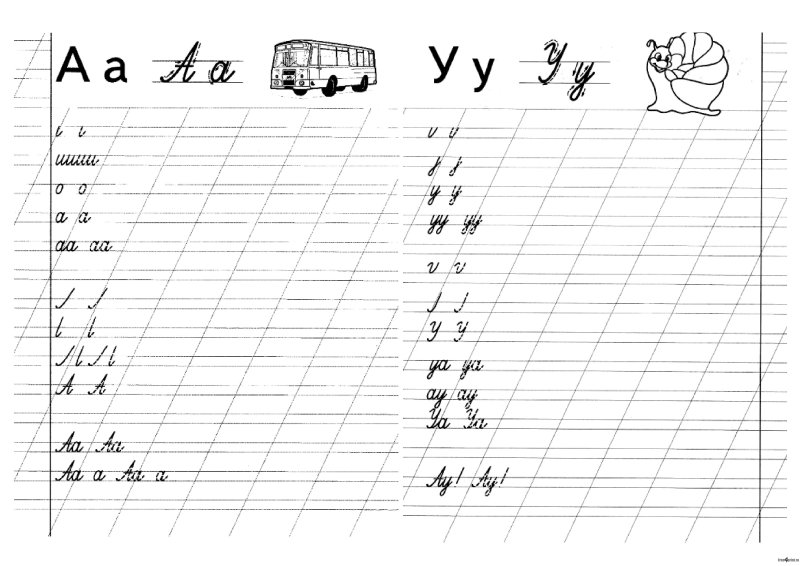 А а А а
о о
а а
аа аа
А А
Аа Аа
Аа а Аа а
У у У у
у у
уу уу
У У
уа уа
ау ау
Уа Уа
Ау! Ау!